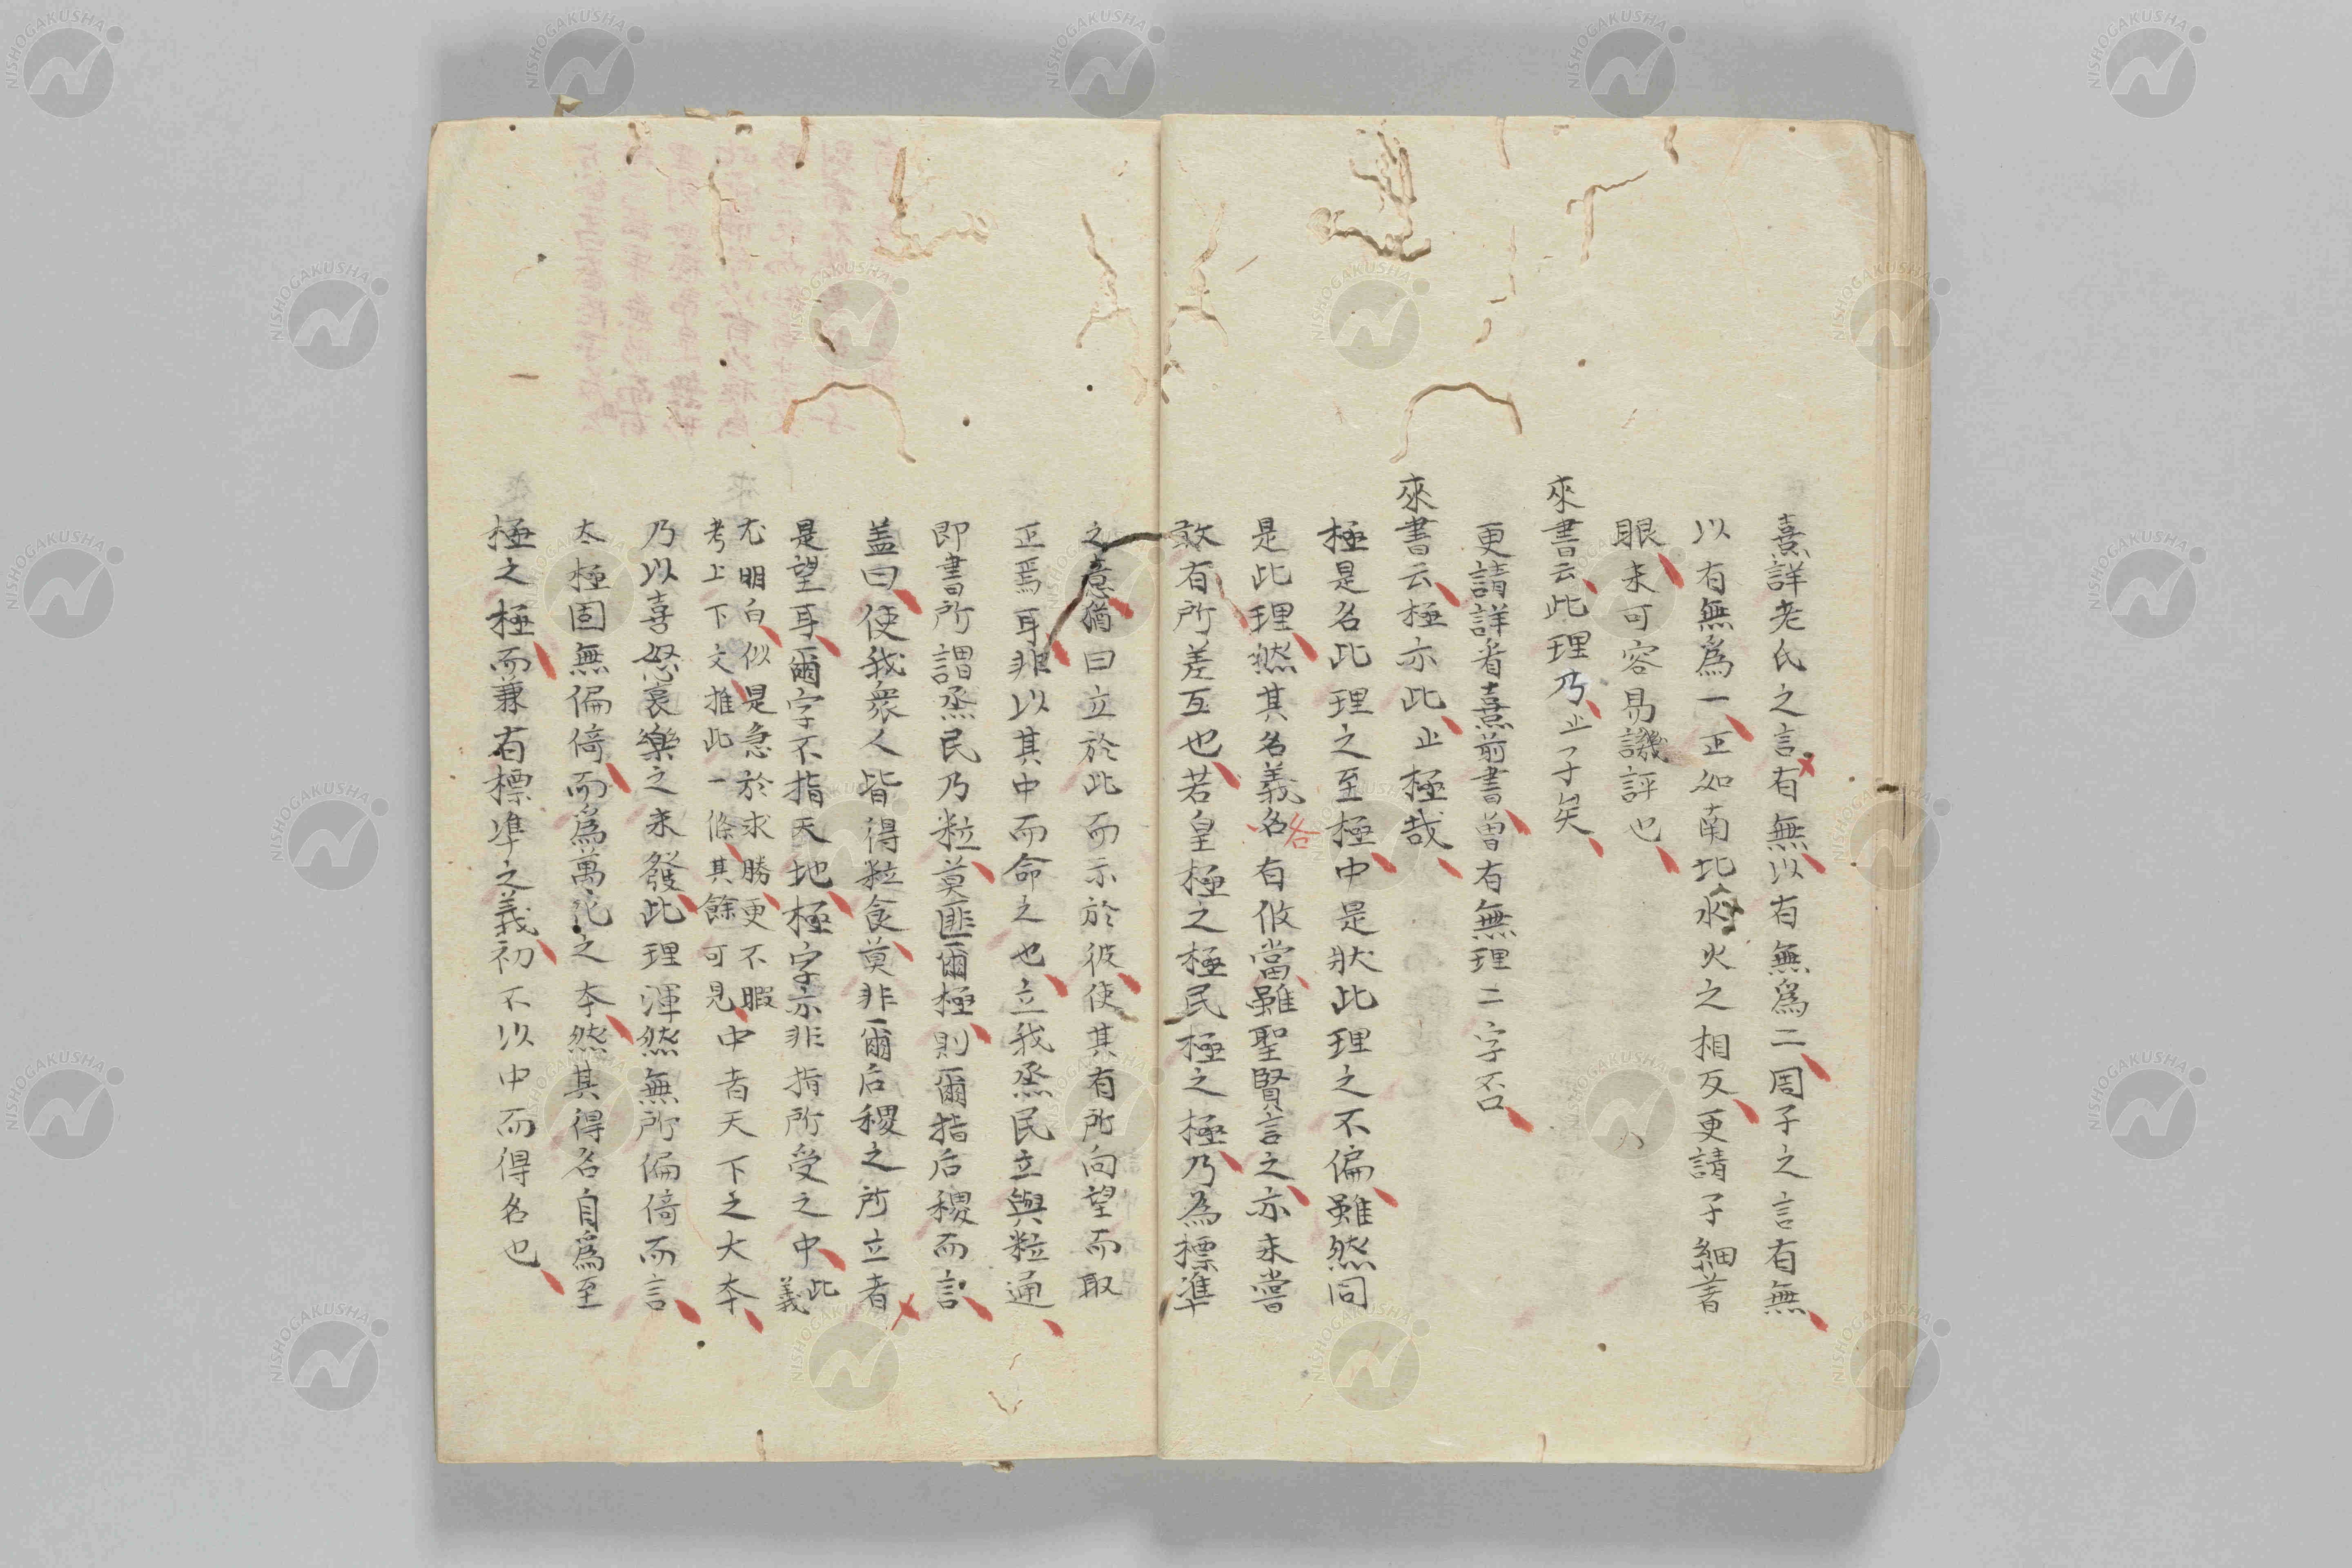 熹詳老氏之言有無以有無爲二周子之言有無
以有無爲一正如南北水火之相反更請子細着
眼未可容易譏評也
來書云此理乃止子矣
更請詳看熹前書曽有無理二字不
來書云極亦此止極哉
極是名此理之至極中是狀此理之不偏雖然同
是此理然其名義名有攸當雖聖賢言之亦未嘗
各
敢有所差互也若皇極之極民極之極乃為標準
之意猶曰立於此而示於彼使其有所向望而取
正焉耳非以其中而命之也立我烝民立與粒通
即書所謂烝民乃粒莫匪爾極則爾指后稷而言
盖曰使我衆人皆得粒食莫非爾后稷之所立者
是望耳爾字不指天地極字亦非指所受之中此
義
尤明白似是急於求勝更不暇
考上下文推此一條其餘可見中者天下之大本
乃以喜怒哀樂之未發此理渾然無所偏倚而言
太極固無偏倚而爲萬化之本然其得名自爲至
極之極而兼有標凖之義初不以中而得名也
NISHOGAKUSHA